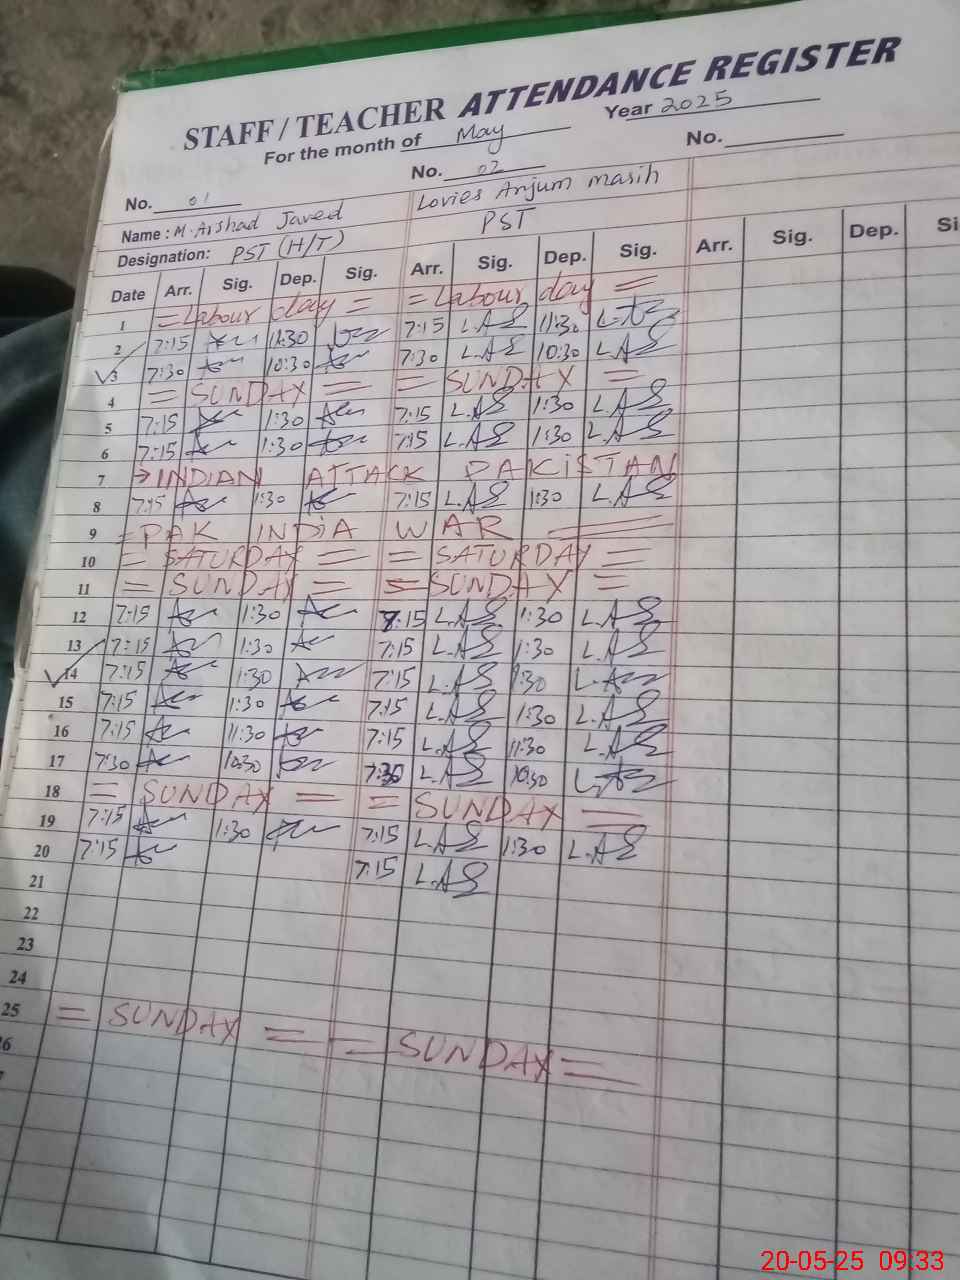 STAFF / TEACHER ATTENDANCE REGISTER
For the month of May Year 2025
No. 01 No. 02 No.
Name : M. Arshad Javed Lovies Anjum masih
Designation: PST (H/T) PST
Date Arr. Sig. Dep. Sig. Arr. Sig. Dep. Sig. Arr. Sig. Dep. Si
1 = Labour day = = Labour day =
2 7:15 11:30 7:15 L.AS 11:30
3 7:30 10:30 7:30 L.AS 10:30 L.AS
4 = SUNDAY = = SUNDAY =
5 7:15 1:30 7:15 L.AS 1:30 L.AS
6 7:15 1:30 7:15 L.AS 1:30 L.AS
7 → INDIAN ATTACK PAKISTAN
8 7:15 1:30 7:15 L.AS 1:30 L.AS
9 = PAK INDIA WAR =
10 = SATURDAY = = SATURDAY =
11 = SUNDAY = = SUNDAY =
12 7:15 1:30 7:15 L.AS 1:30 L.AS
13 7:15 1:30 7:15 L.AS 1:30 L.AS
14 7:15 1:30 7:15 L.AS 1:30
15 7:15 1:30 7:15 L.AS 1:30 L.AS
16 7:15 11:30 7:15 L.AS 11:30 L.AS
17 7:30 10:30 7:30 L.AS 10:30
18 = SUNDAY = = SUNDAY =
19 7:15 1:30 7:15 L.AS 1:30 L.AS
20 7:15 7:15 L.AS
21
22
23
24
25 = SUNDAY = = SUNDAY =
6
20-05-25 09:33